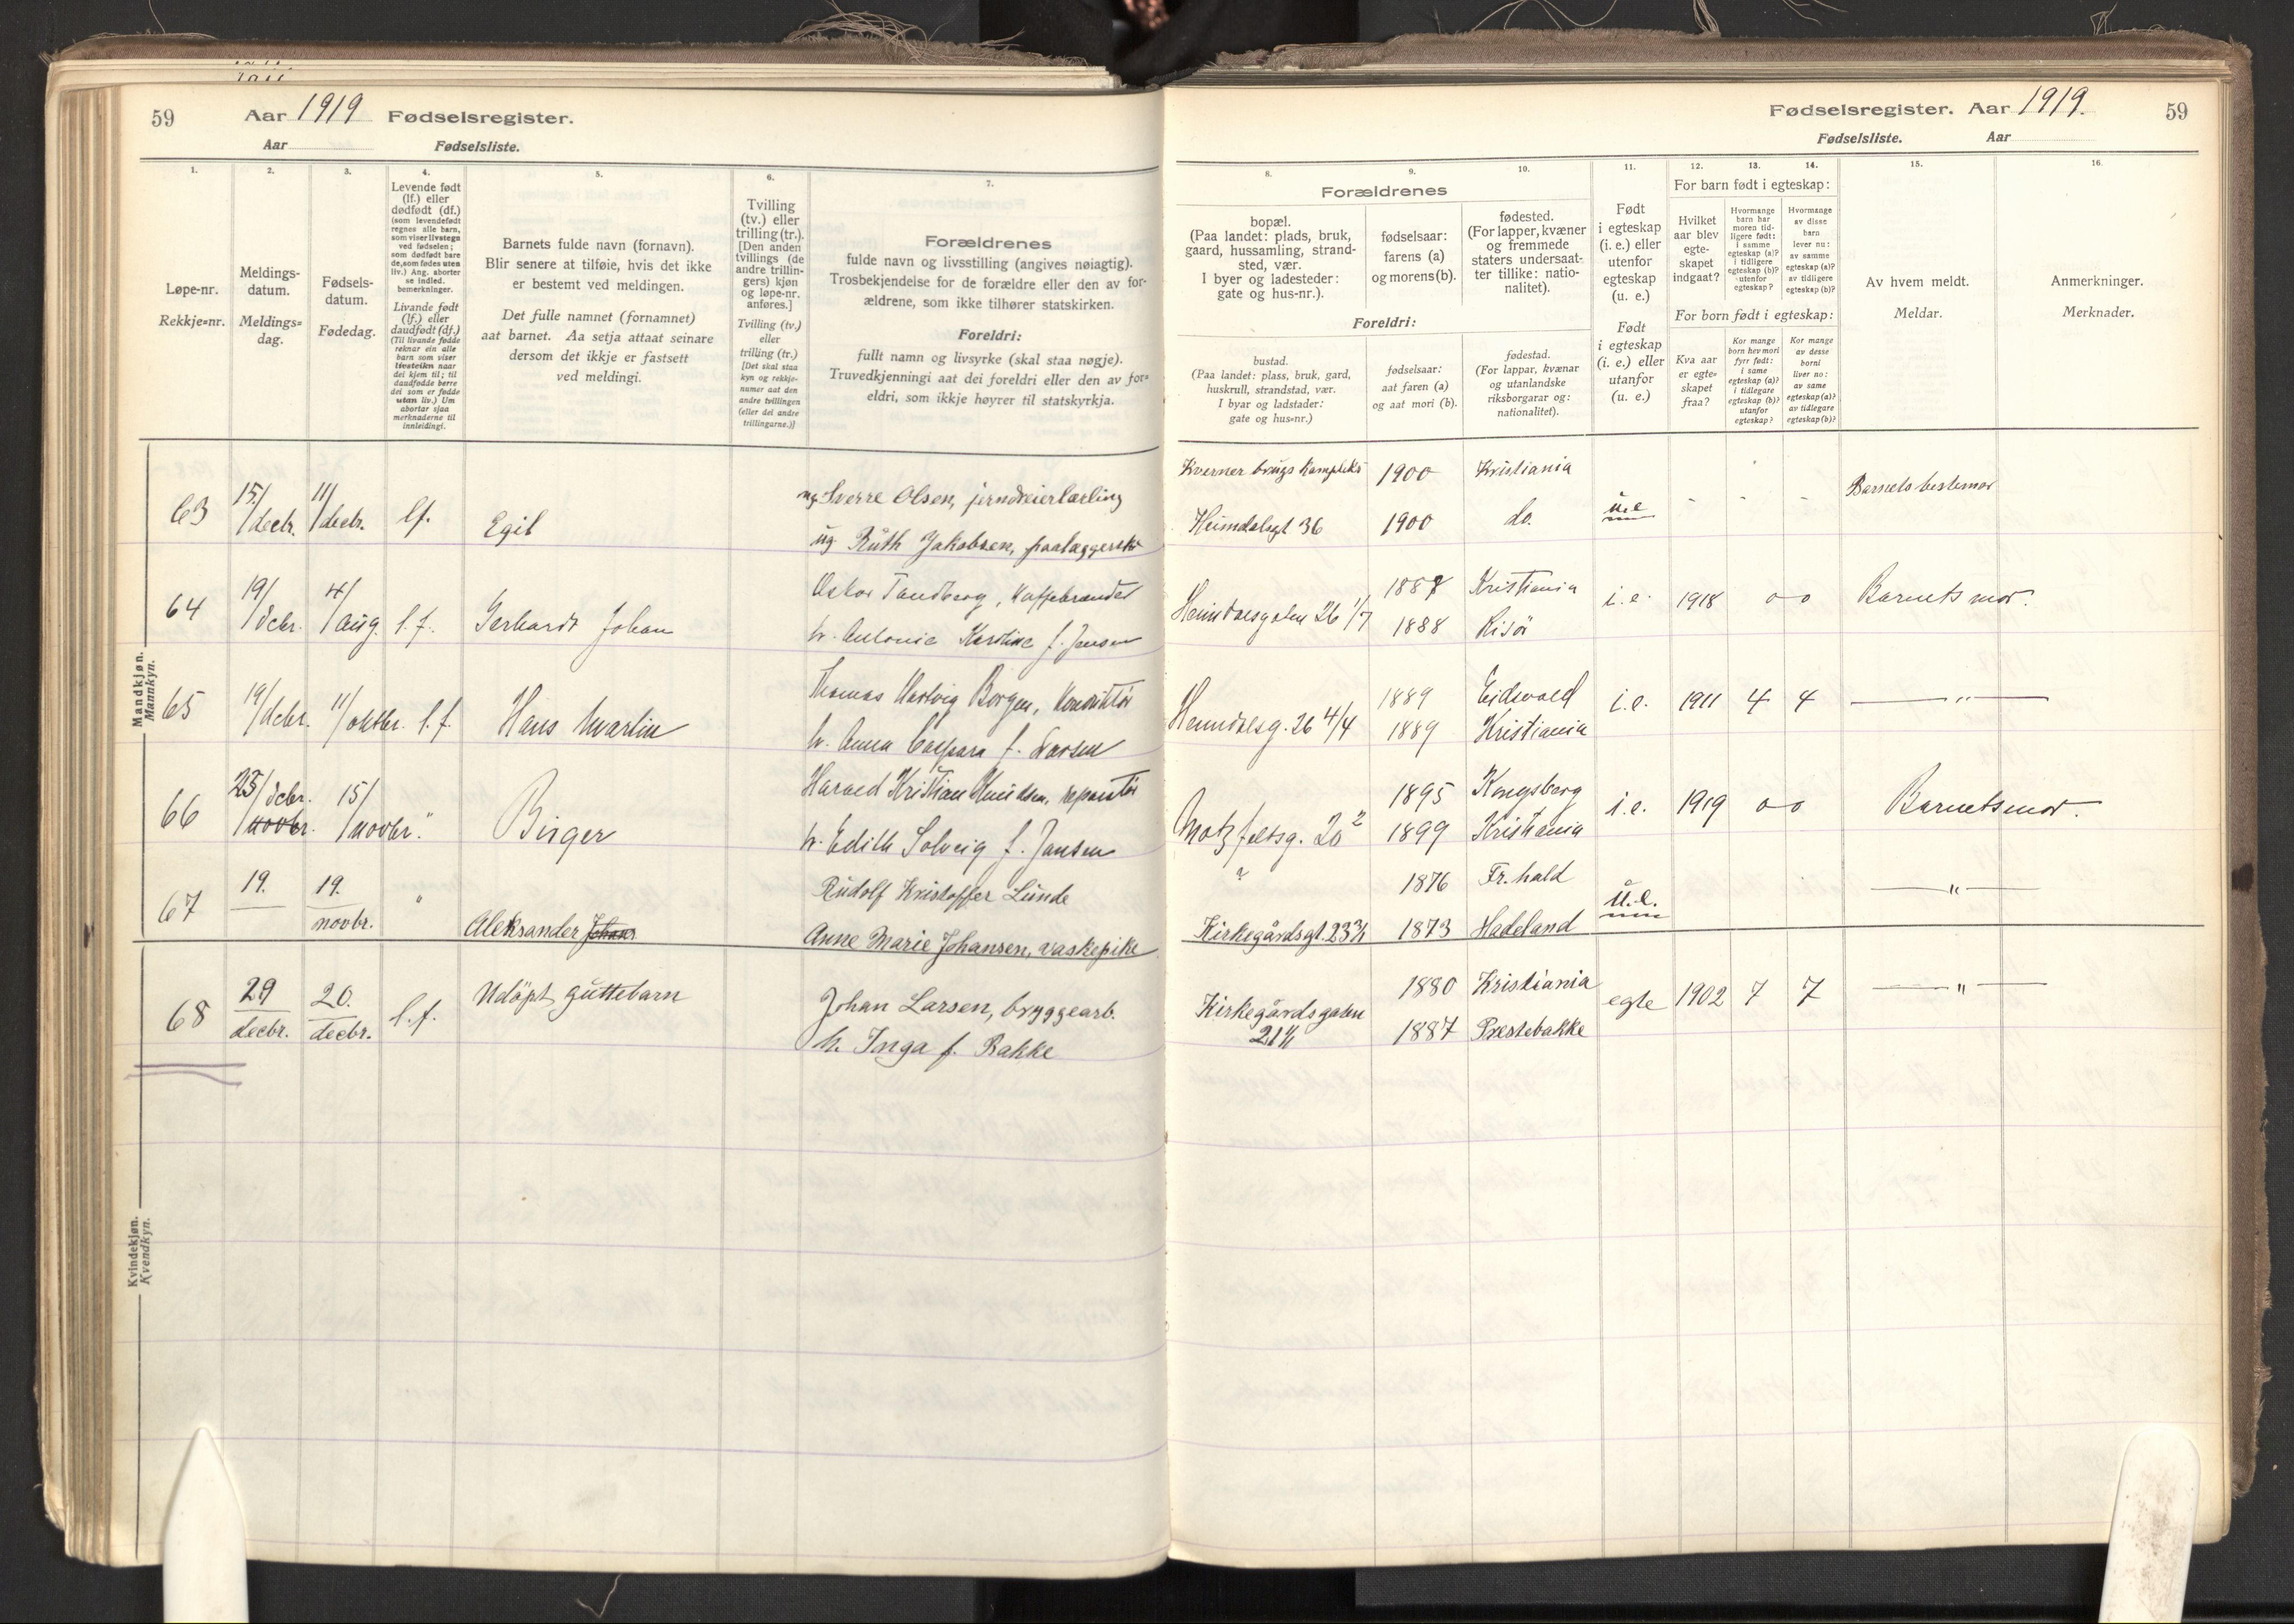 59
Aar 1919 Fødselsregister.
Aar Fødselsliste.
1.
Løpe-nr.
Rekkje=nr.
2.
Meldings-
datum.
Meldings=
dag.
3.
Fødsels-
datum.
Fødedag.
4.
Levende født
(lf.) eller
dødfødt (df.)
(som levendefødt
regnes alle barn,
som viser livstegn
ved fødselen;
som dødfødt bare
de, som fødes uten
liv.) Ang. aborter
se indled.
bemerkninger.
Livande født
(lf.) eller
daudfødt (df.)
(Til livande fødde
reknar ein alle
barn som viser
livsteikn naar
dei kjem til; til
daudfødde berre
dei som er fødde
utan liv.) Um
abortar sjaa
merknaderne til
innleidingi.
5.
Barnets fulde navn (fornavn).
Blir senere at tilføie, hvis det ikke
er bestemt ved meldingen.
Det fulle namnet (fornamnet)
aat barnet. Aa setja attaat seinare
dersom det ikkje er fastsett
ved meldingi.
6.
Tvilling
(tv.) eller
trilling (tr.).
[Den anden
tvillings (de
andre trillin-
gers) kjøn
og løpe-nr.
anføres.]
Tvilling (tv.)
eller
trilling (tr.)
[Det skal staa
kyn og rekkje-
numer aat den
andre tvillingen
(eller dei andre
trillingarne.)]
7.
Forældrenes
fulde navn og livsstilling (angives nøiagtig).
Trosbekjendelse for de forældre eller den av for-
ældrene, som ikke tilhører statskirken.
Foreldri:
fullt namn og livsyrke (skal staa nøgje).
Truvedkjenningi aat dei foreldri eller den av for=
eldri, som ikkje høyrer til statskyrkja.
Mandkjøn.
Mannkyn.
63 15./decbr. 11/decbr. lf. Egil
ug. Sverre Olsen, jerndreierlærling
ug Ruth Jakobsen, paalæggerske
64 19/decbr. 4/aug. l.f. Gerhardt Johan
Oskar Tandberg, Kaffebrænder
h. Antonie Kirstine f. Jensen
65 19/decbr. 11/oktbr. l.f. Hans Martin
Thomas Hartvig Borgen, Konduktør
h. Anna Caspara f. Larsen
66 23/decbr. novbr. 15/novbr. " Birger
Harald Kristian Knudsen, reparatør
h. Edith Solveig f. Jansen
67 19. 19. novbr. " Aleksander Johan
Rudolf Kristoffer Lunde
Anne Marie Johansen, vaskepike
68 29 decbr. 20. decbr. l.f. Udöpt guttebarn
Johan Larsen, bryggearb.
h. Inga f. Bakke
Kvindekjøn.
Kvendkyn.
Fødselsregister. Aar 1919. 59
Fødselsliste. Aar
8.
9.
10.
Forældrenes
bopæl.
(Paa landet: plads, bruk,
gaard, hussamling, strand-
sted, vær.
I byer og ladesteder:
gate og hus-nr.).
fødselsaar:
farens (a)
og morens (b).
fødested.
(For lapper, kvæner
og fremmede
staters undersaat-
ter tillike: natio-
nalitet).
Foreldri:
bustad.
(Paa landet: plass, bruk, gard,
huskrull, strandstad, vær.
I byar og ladstader:
gate og hus=nr.)
fødselsaar:
aat faren (a)
og aat mori (b).
fødestad.
(For lappar, kvænar
og utanlandske
riksborgarar og:
nationalitet).
11.
Født
i egteskap
(i. e.) eller
utenfor
egteskap
(u. e.)
Født
i egteskap
(i. e.) eller
utanfor
(u. e.)
12.
13.
14.
For barn født i egteskap:
Hvilket
aar blev
egte-
skapet
indgaat?
Hvormange
barn har
moren tid-
ligere født:
i samme
egteskap (a)?
i tidligere
egteskap (b)?
utenfor
egteskap?
Hvormange
av disse
barn
lever nu:
av samme
egteskap (a)?
av tidligere
egteskap (b)?
For born født i egteskap:
Kva aar
er egte=
skapet
fraa?
Kor mange
born hev mori
fyrr født:
i same
egteskap (a)?
i tidlegare
egteskap (b)?
utanfor
egteskap?
Kor mange
av desse
borni
liver no:
av same
egteskap (a)?
av tidlegare
egteskap (b)?
15.
Av hvem meldt.
Meldar.
16.
Anmerkninger.
Merknader.
Kverner brugs Kompleks 1900 Kristiania
Heimdalsgt 36 1900 do. u.e - - - Barnets bestemor
Heimdalsgaten 26 1/7 1887 Kristiania
1888 Risör i.e. 1918 o o Barnets mor.
Heimdalsg. 26 4/4 1889 Eidsvold
1889 Kristiania i.e. 1911 4 4 — " —
Motzfeltsg. 20² 1895 Kongsberg
1899 Kristiania i.e. 1919 o o Barnets mor.
? 1876 Fr.hald
Kirkegårdsgt. 23 1873 Hadeland u.e. — " —
Kirkegårdsgaten 1880 Kristiania
21 1887 Prestebakke egte 1902 7 7 — " —